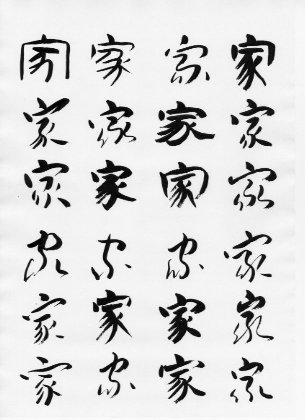 家 家 家 家
家 家 家 家
家 家 家 家
家 家 家 家
家 家 家 家
家 家 家 家